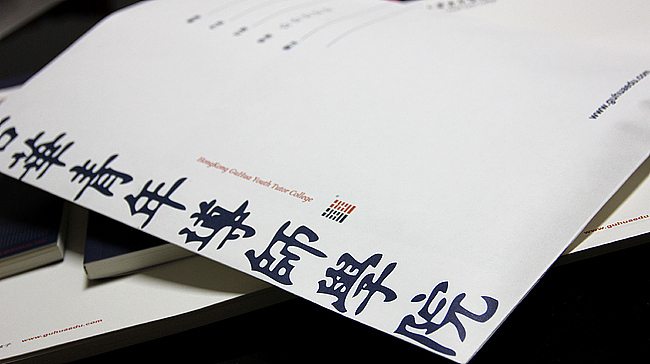 www.guhuaedu.com
HongKong GuHua Youth Tutor College
華青年導師學院
www.guhuaedu.com
www.guhuaedu.com